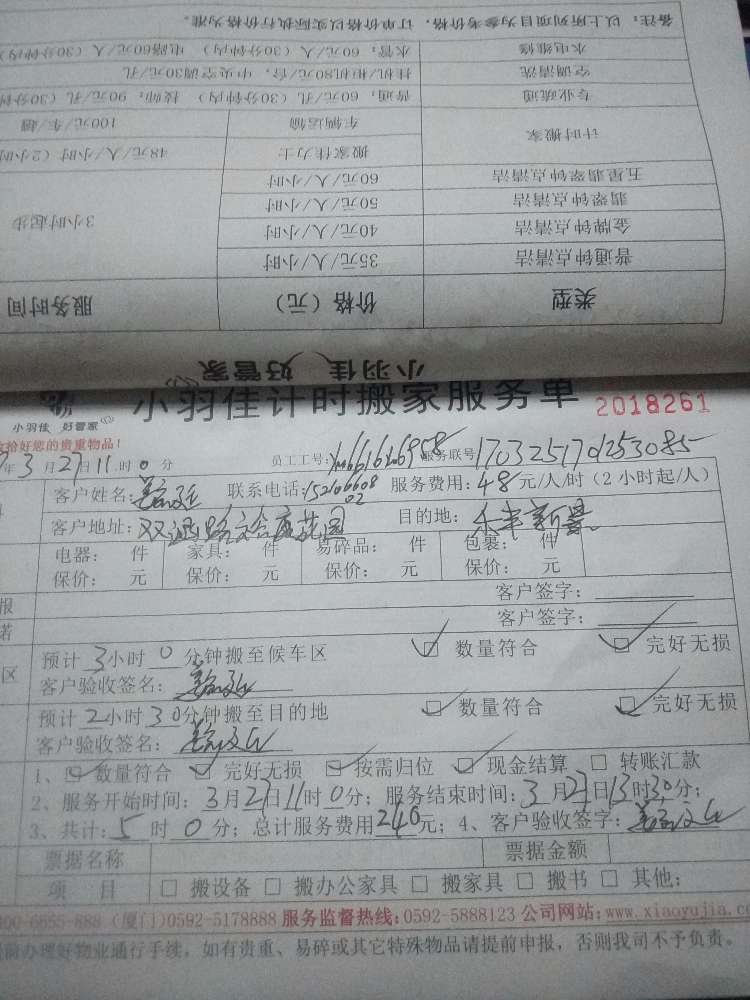 备注：以上所列项目为参考价格，订单价格以实际执行价格为准.
水电维修 水管：60元/人（30分钟内） 电路60元/人（30分钟内）
空调清洗 挂机/柜机80元/台，中央空调30元/孔
专业疏通 普通：60元/孔（30分钟内） 技师：90元/孔（30分钟
计时搬家 车辆运输 100元/车/趟
搬家佳力士 48元/人/小时（2小时
五星翡翠钟点清洁 60元/人/小时
翡翠钟点清洁 50元/人/小时
金牌钟点清洁 40元/人/小时 3小时起步
普通钟点清洁 35元/人/小时
类型 价格（元） 服务时间
小羽佳 好管家
小羽佳计时搬家服务单 2018261
小羽佳 好管家
检拾好您的贵重物品！
年3月27日11时0分 员工工号： 服务联号1703251701253085
客户姓名： 联系电话：1521066080 02 服务费用：48元/人/时（2小时起/人）
客户地址： 目的地：禾丰新景
电器： 件 家具： 件 易碎品： 件 包裹： 件
保价： 元 保价： 元 保价： 元 保价： 元
报 客户签字：
若 客户签字：
预计3小时0分钟搬至候车区 数量符合 完好无损
区 客户验收签名：
预计2小时30分钟搬至目的地 数量符合 完好无损
客户验收签名：
1、 数量符合 完好无损 按需归位 现金结算 转账汇款
2、服务开始时间：3月27日11时0分；服务结束时间：3月27日13时30分；
3、共计：5时0分；总计服务费用240元；4、客户验收签字：
票据名称 票据金额
项 目 搬设备 搬办公家具 搬家具 搬书 其他：
00-6655-888（厦门）0592-5178888 服务监督热线:0592-5888123 公司网站:www.xiaoyujia.c
前办理好物业通行手续，如有贵重、易碎或其它特殊物品请提前申报，否则我司不予负责。